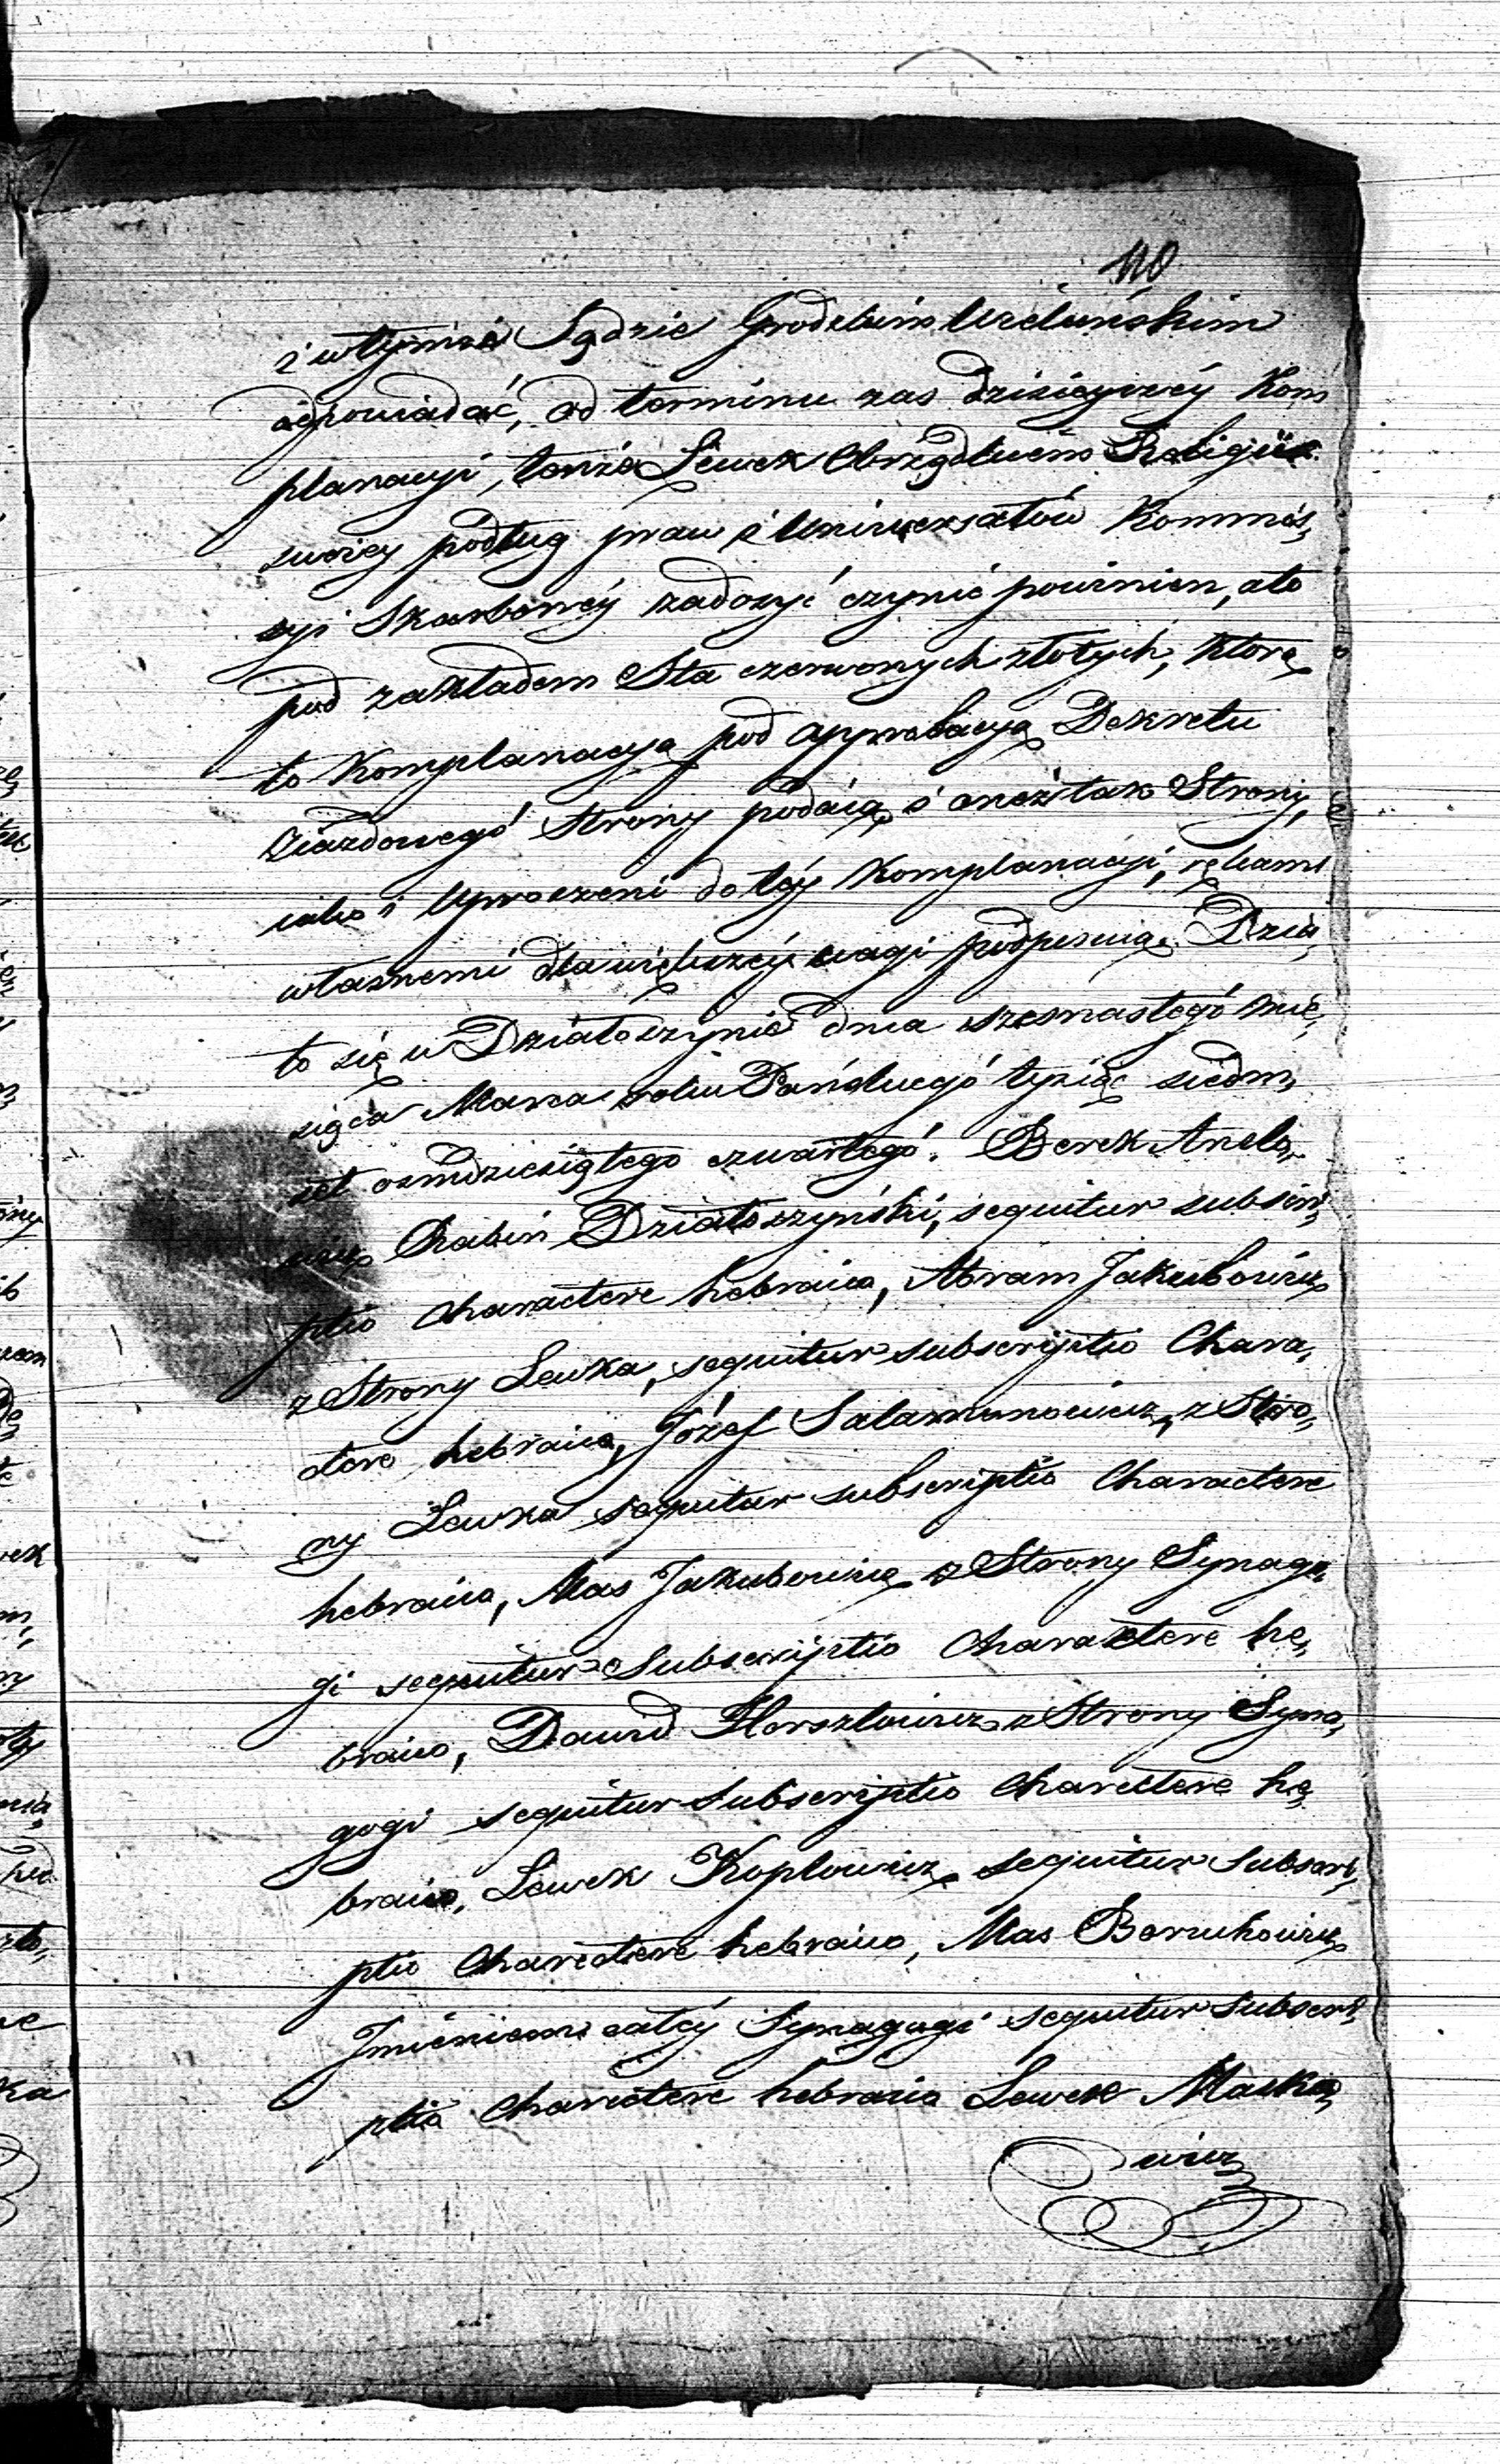 110
i wtymże Sądzie Grodzkim Wieluńskim
odpowiadać, od terminu zas dzisieyszey Kom
planacyi, tenże Lewek Obrządkiem Religii
swoiey podług praw i Uniwersałów Kommis,
syi Skarbowey zadosyć czynić powinien, ato
pod zakładem Sta czerwonych złotych, którą
to Komplanacyą pod approbacyą Dekretu
Ziazdowego Strony podaią i oneż tak Strony,
iako i Uproszeni do tey Komplanacyi, rękami
własnemi dla większey wagi podpisuią. Dzia,
to się w Działoszynie dnia szesnastego mie,
siąca Marca roku Pańskiego tysiąc siedm,
set osmdziesiątego czwartego. Berek
Rabin Działoszyński, sequitur subscri,
ptio Charactere hebraico, Abram Jakubowicz
z Strony Lewka, sequitur subscriptio Chara,
ctere hebraico, Józef Salamonowicz, z Stro,
ny Lewka sequitur subscriptio Charactere
hebraico, Mas Jakubowicz z Strony Synago,
gi sequitur Subscriptio Charactere he,
braico, Dawid Herszlowicz z Strony Syna,
gogi sequitur Subscriptio Charectere he,
braico, Lewek Koplowicz sequitur Subscri,
ptio Charectere hebraico, Mas Baruchowicz
Imieniem całey Synagogi sequitur Subscri,
ptio Charectere hebraico Lewek Maiko,
wicz